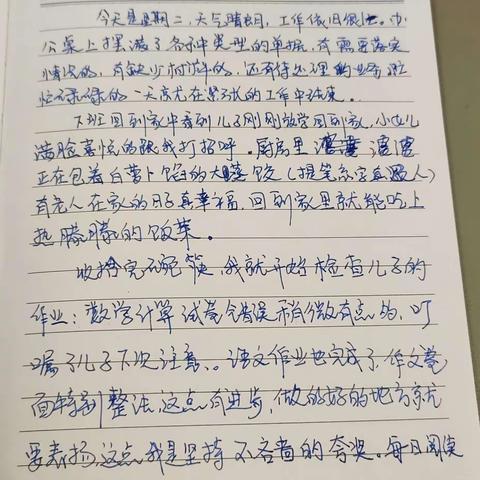 今天是星期二,天气晴朗,工作依旧很忙。办
公桌上摆满了各种类型的单据,有需要落实
情况的,有缺少材料的,还有待处理的业务,忙
忙碌碌的一天就在紧张的工作中结束。
下班回到家中看到儿子刚刚放学回到家,小女儿
满脸喜悦的跟我打招呼。厨房里 婆婆
正在包着白萝卜馅的大蒸饺(提笔忘字真愁人)
有老人在家的日子真幸福,回到家里就能吃上
热朦朦的饭菜。
收拾完碗筷,我就开始检查儿子的
作业:数学计算试卷错误稍微有点多,叮
嘱了儿子下次注意。语文作业也完成了,作文卷
面特别整洁,这点有进步,做的好的地方就
要表扬,这点我是坚持不吝啬的夸奖。每日阅读